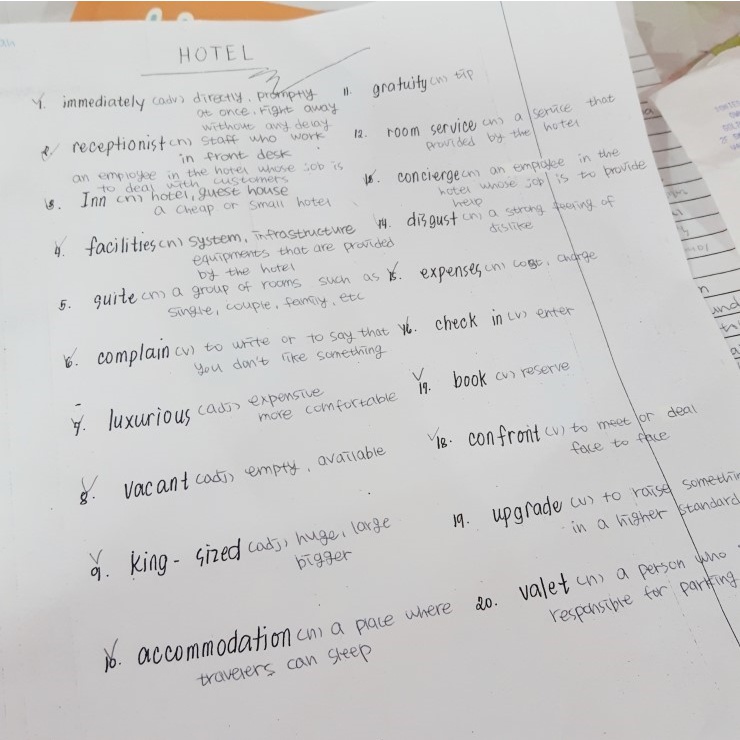 HOTEL
1. immediately (adv) directly, promptly
at once, right away
without any delay
2. receptionist (n) staff who work
in front desk
an employee in the hotel whose job is
to deal with customers
3. Inn (n) hotel, guest house
a cheap or small hotel
4. facilities (n) system, infrastructure
equipments that are provided
by the hotel
5. suite (n) a group of rooms such as
single, couple, family, etc
6. complain (v) to write or to say that
you don't like something
7. luxurious (adj) expensive
more comfortable
8. vacant (adj) empty, available
9. king-sized (adj) huge, large
bigger
10. accommodation (n) a place where
travelers can sleep
11. gratuity (n) tip
12. room service (n) a service that
provided by the hotel
13. concierge (n) an employee in the
hotel whose job is to provide
help
14. disgust (n) a strong feeling of
dislike
15. expenses (n) cost, charge
16. check in (v) enter
17. book (v) reserve
18. confront (v) to meet or deal
face to face
19. upgrade (v) to raise
in a higher standard
20. valet (n) a person who
responsible for parking